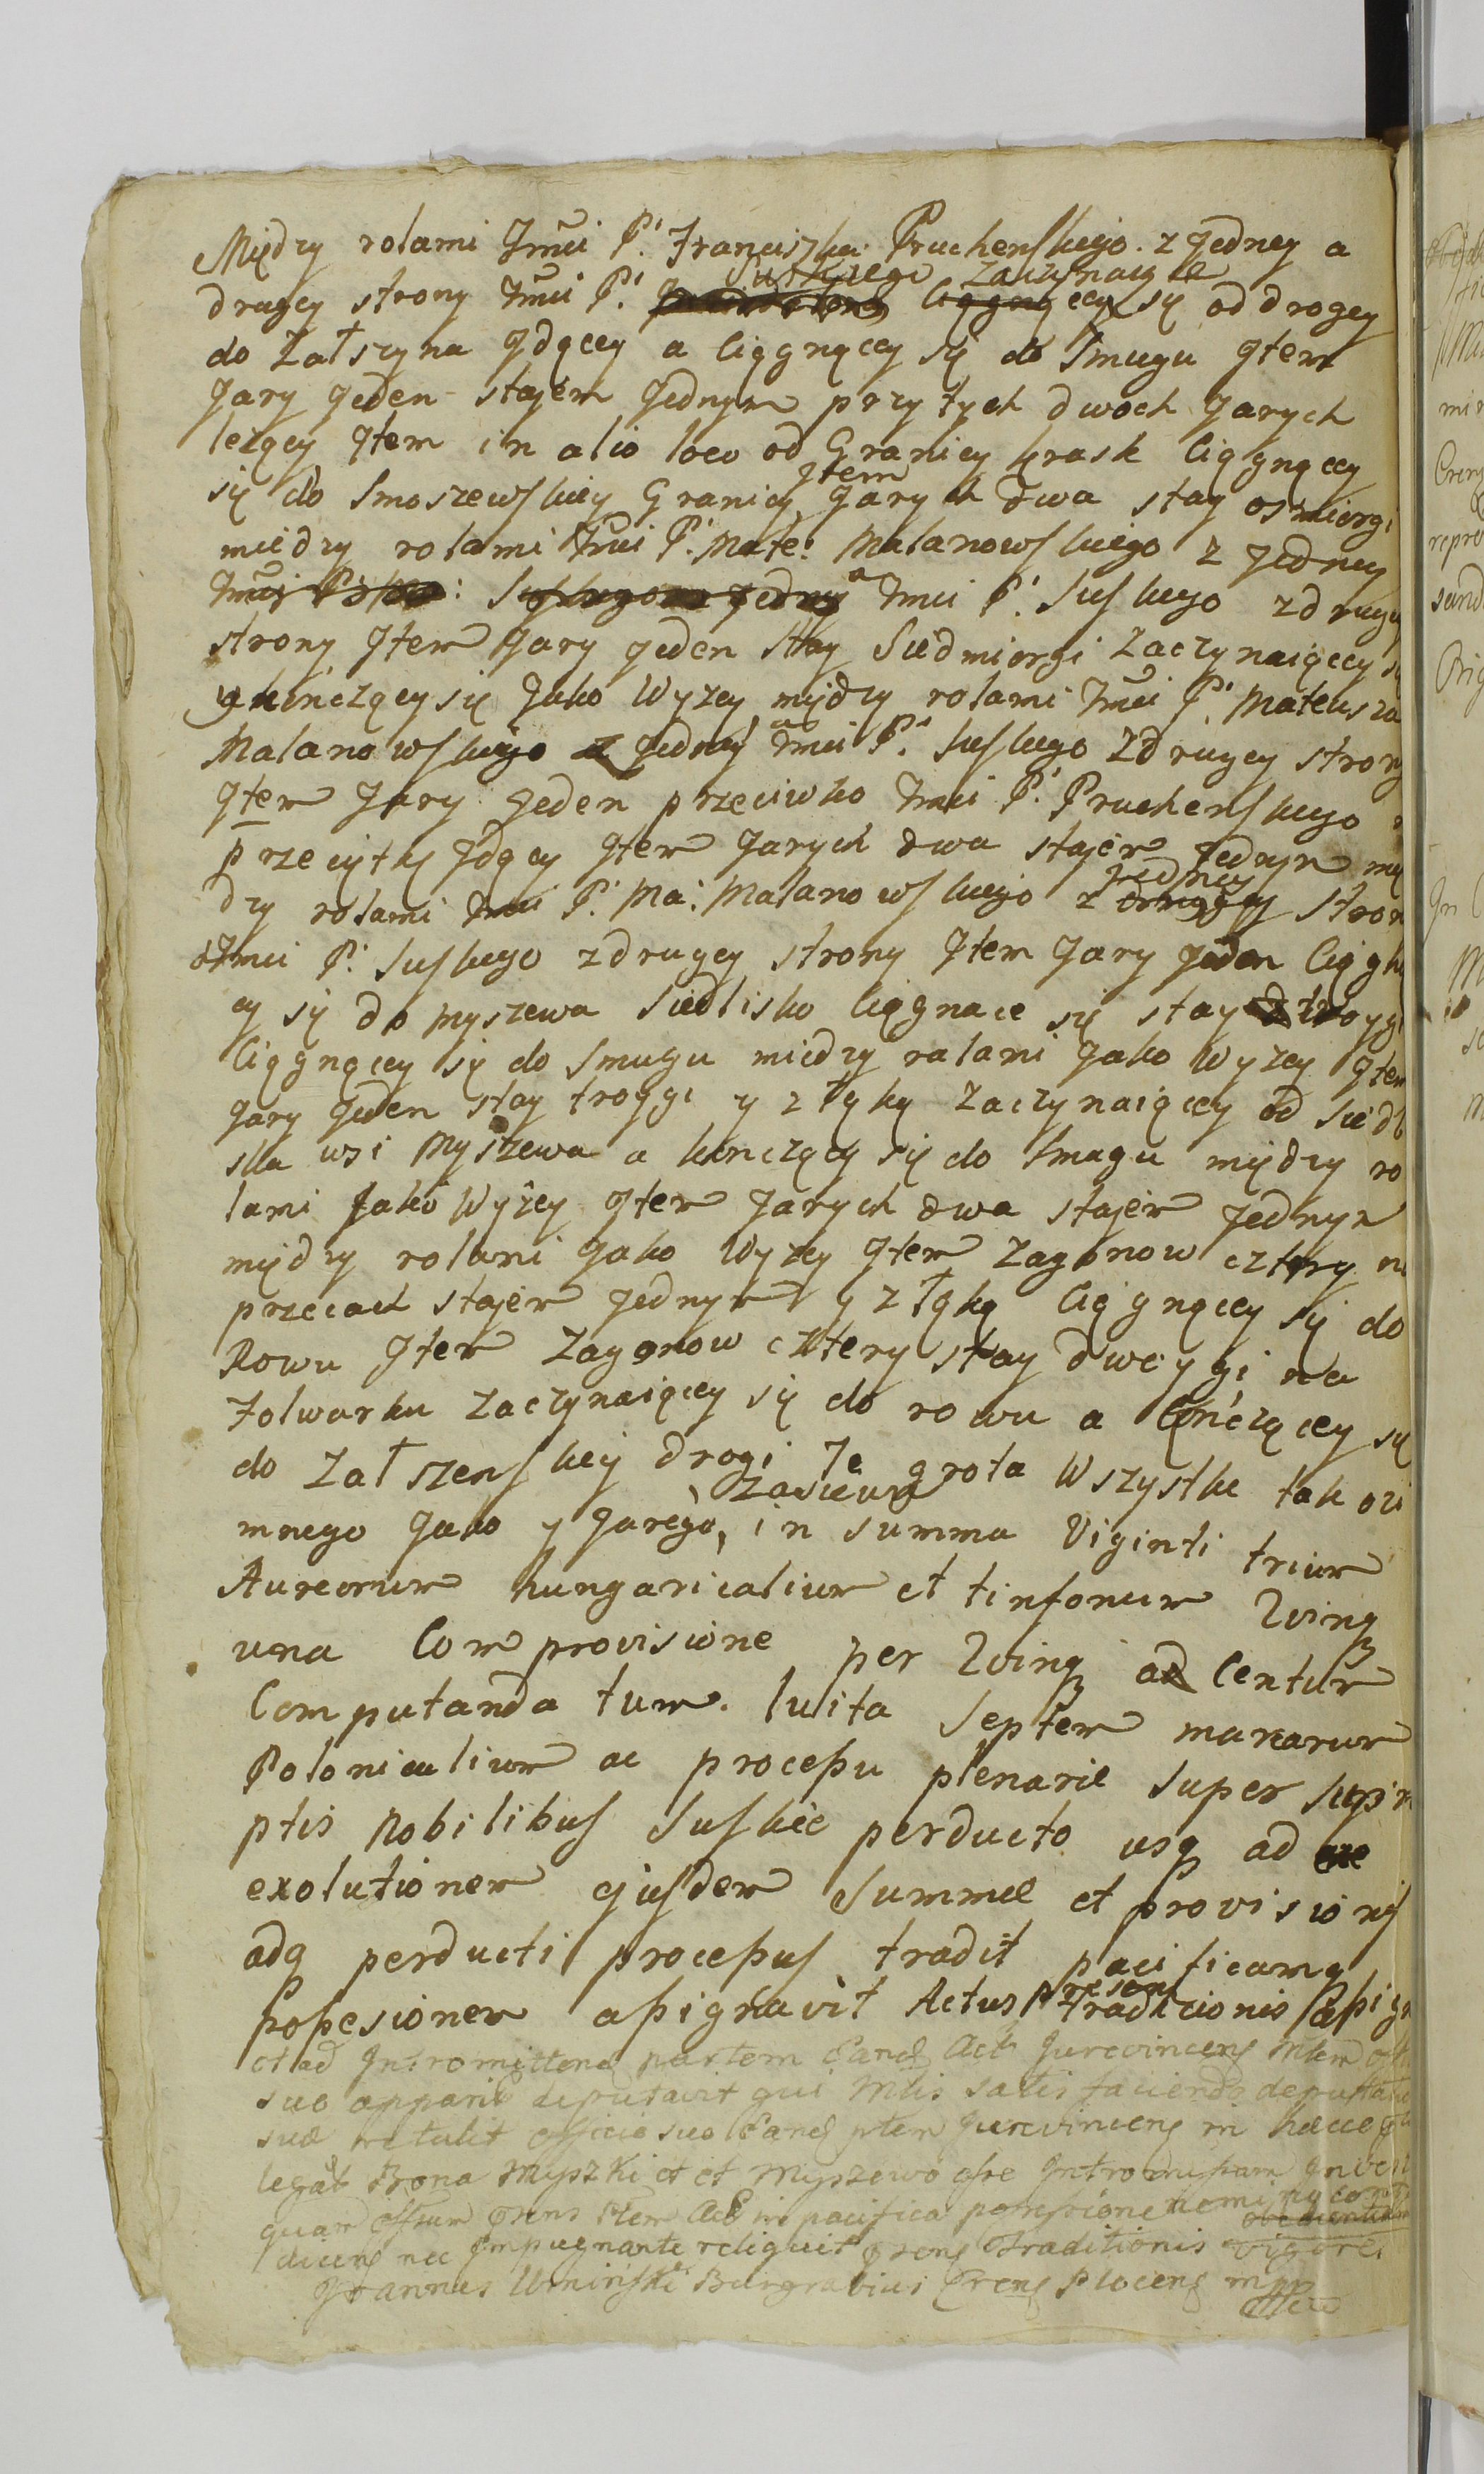 Między rolami Jmći P. Franciszka Pruchenskiego z Jedney a
Suskiego Zaczynaiące
drugey strony Jmći P. ciągnącey się od drogey
do Załszyna Jdącey a Ciągnącey się do Smugu Jtem
Jary Jeden stajem Jednym przy tych dwoch Jarych
lezący Jtem in alio loco od Granicy Krask Ciągnącey
Jtem
się do Smoszewskiey Granicy Jarych dwa stay osmiorgi
miedzy rolami Jmći P. Mate: Malanowskiego z Jedney
a Jmći P. Suskiego z drugey
strony Jtem Jary Jeden stay Siedmiorgi Zaczynaiącey się
y kończącey się Jako Wyzey między rolami Jmći P. Mateusza
Malanowskiego z Jedney a Jmći P. Suskiego z drugey strony
Jtem Jary Jeden przeciwko Jmći P. Pruchenskiego
przecytky Jdący Jtem Jarych dwa stajem Jednym mię
Jedney
dzy rolami Jmći P. Ma: Malanowskiego z drugey stron
a Jmći P. Suskiego z drugey strony Jtem Jary Jeden Ciągną
cy się do Myszewa Siedlisko Ciągnące się stay troygi
Ciągnącey się do Smugu miedzy rolami Jako Wyzey Jtem
Jary Jeden stay troygi y z łąką Zaczynaiącey od Siedl
ska wsi Myszewa a kończący się do Smugu między ro
lami Jako Wyżey Jtem Jarych dwa stajem Jednym
między rolami Jako Wyzey Jtem Zagonow cztery na
przecach stajem Jednym y z łąką Ciągnącey się do
Rowu Jtem Zagonow cztery stay dwoygi na
Folwarku Zaczynaiącey się do rowu a kończącey się
do Załszenskiey drogi Te grota Wszystkie tak ozi
Zasiewu
mnego Jako y Jarego, in summa Viginti trium
Aureorum hungaricalium et tinfonum Quinq
una Cum provisione per Quinq ad Centum
Computanda tum. luita Septem marcarum
Polonicalium ac processu plenarie super supra
ptis Nobilibus Suskie perducto usq ad
exolutionem ejusdem Summae et provisionis
adq perducti processus tradit pacificamq
possesionem assignavit Actus
presen
traditionis assign
et ad Intromittend partem eand Act Jurevincens Mlem
suo apparit deputavit qui Mlis satis faciendo deputat
suae retulit officio suo eand ptem Jurevincens in haece
legat Bona Myszki et et Myszewo esse Intromissam
quam offum prens ptem Act in pacifica possessione nemine contra
dicens nec Impugnante reliquit prens traditionis vigore
Joannes Uminski Burgrabius Crens Plocens mpp